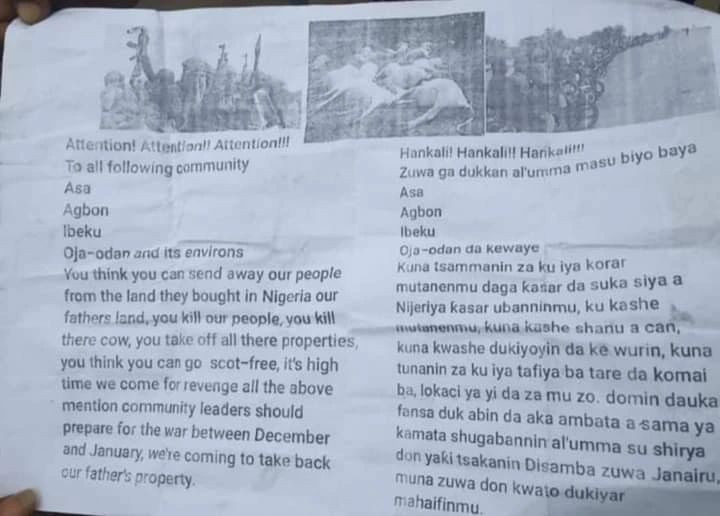 Attention! Attention!! Attention!!!
To all following community
Asa
Agbon
Ibeku
Oja-odan and its environs
You think you can send away our people
from the land they bought in Nigeria our
fathers land, you kill our people, you kill
there cow, you take off all there properties,
you think you can go scot-free, it's high
time we come for revenge all the above
mention community leaders should
prepare for the war between December
and January, we're coming to take back
our father's property.
Hankali! Hankali!! Hankali!!!
Zuwa ga dukkan al'umma masu biyo baya
Asa
Agbon
Ibeku
Oja-odan da kewaye
Kuna tsammanin za ku iya korar
mutanenmu daga ƙasar da suka siya a
Nijeriya ƙasar ubanninmu, ku kashe
mutanenmu, kuna kashe shanu a can,
kuna kwashe dukiyoyin da ke wurin, kuna
tunanin za ku iya tafiya ba tare da komai
ba, lokaci ya yi da za mu zo. domin dauka
fansa duk abin da aka ambata a sama ya
kamata shugabannin al'umma su shirya
don yaƙi tsakanin Disamba zuwa Janairu,
muna zuwa don kwato dukiyar
mahaifinmu.